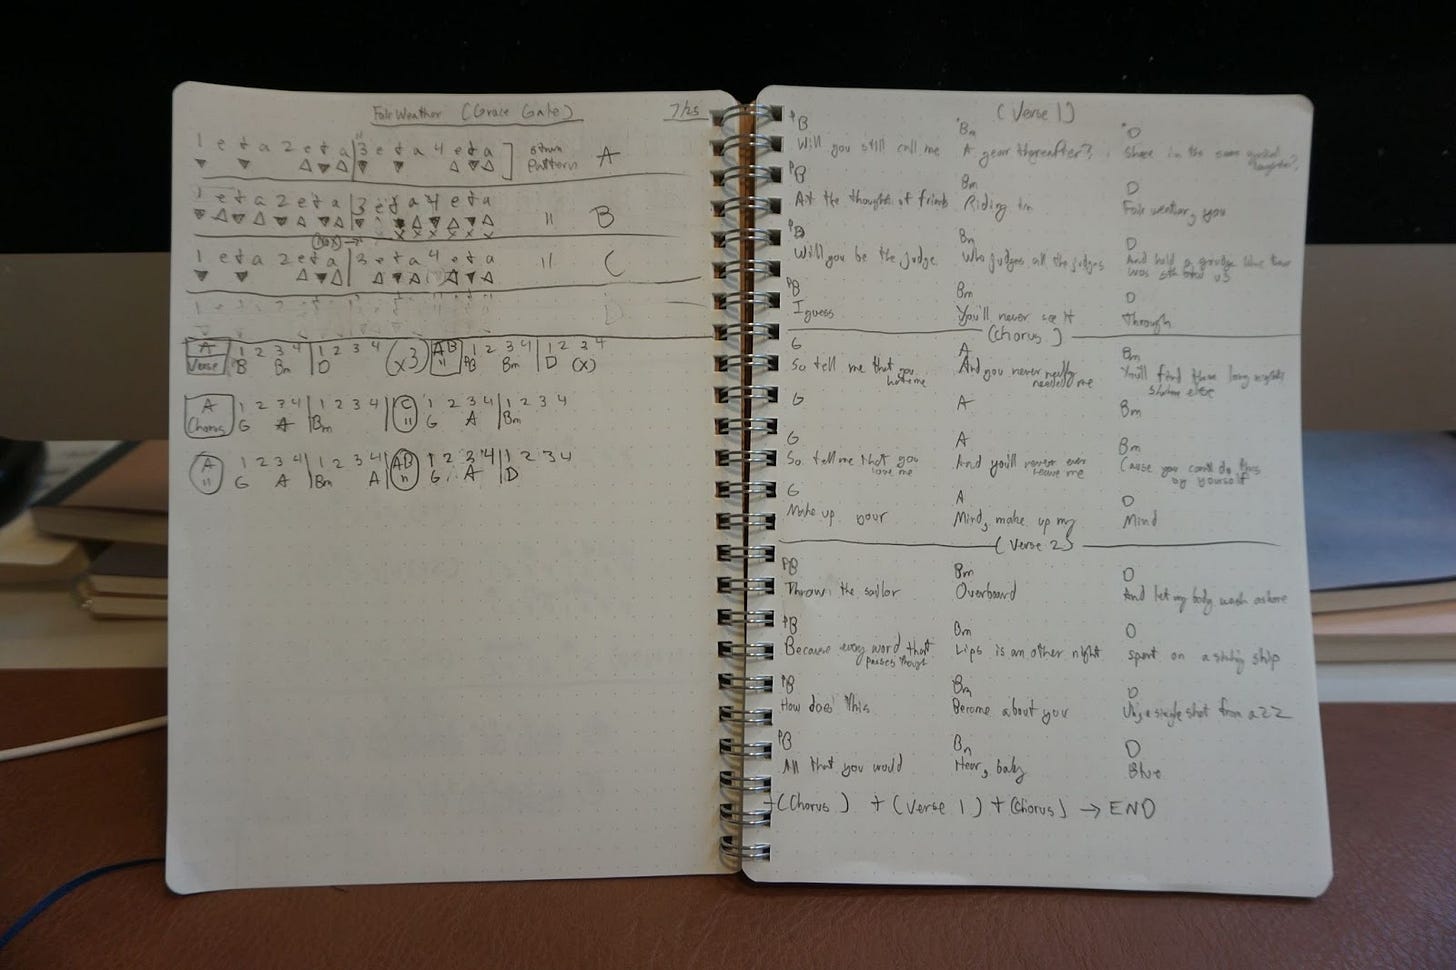 Fair Weather (Grace Gate) 7/25
1 e & a 2 e & a | 3 e & a 4 e & a strum pattern A
1 e & a 2 e & a | 3 e & a 4 e & a " B
1 e & a 2 e & a | 3 e & a 4 e & a " C
D
A Verse 1 2 3 4 | 1 2 3 4 (x3) AB " 1 2 3 4 | 1 2 3 4
B Bm D B Bm D (x)
A Chorus 1 2 3 4 | 1 2 3 4 | C " 1 2 3 4 | 1 2 3 4
G A Bm G A Bm
A " 1 2 3 4 | 1 2 3 4 | AB " 1 2 3 4 | 1 2 3 4
G A Bm A G A D
(Verse 1)
B Bm D
Will you still call me A year thereafter? Share in the same
B Bm D
At the thought of friends Riding in Fair weather, you
B Bm D
Will you be the judge Who judges all the judges And hold a grudge like there
was
B Bm D
I guess You'll never see it Through
(Chorus)
G A Bm
So tell me that you hate me And you never really needed me You'll find these long nights
someone else
G A Bm
G A Bm
So tell me that you love me And you'll never ever leave me Cause you can't do this
by yourself
G A D
Make up your Mind, make up my Mind
(Verse 2)
B Bm D
Throw the sailor Overboard And let my body wash ashore
B Bm D
Because every word that passes through Lips is an other night spent on a sinking ship
B Bm D
How does this Become about you single shot from a 22
B Bm D
All that you would Hear, baby Blue
+ (Chorus) + (Verse 1) + (Chorus) → END